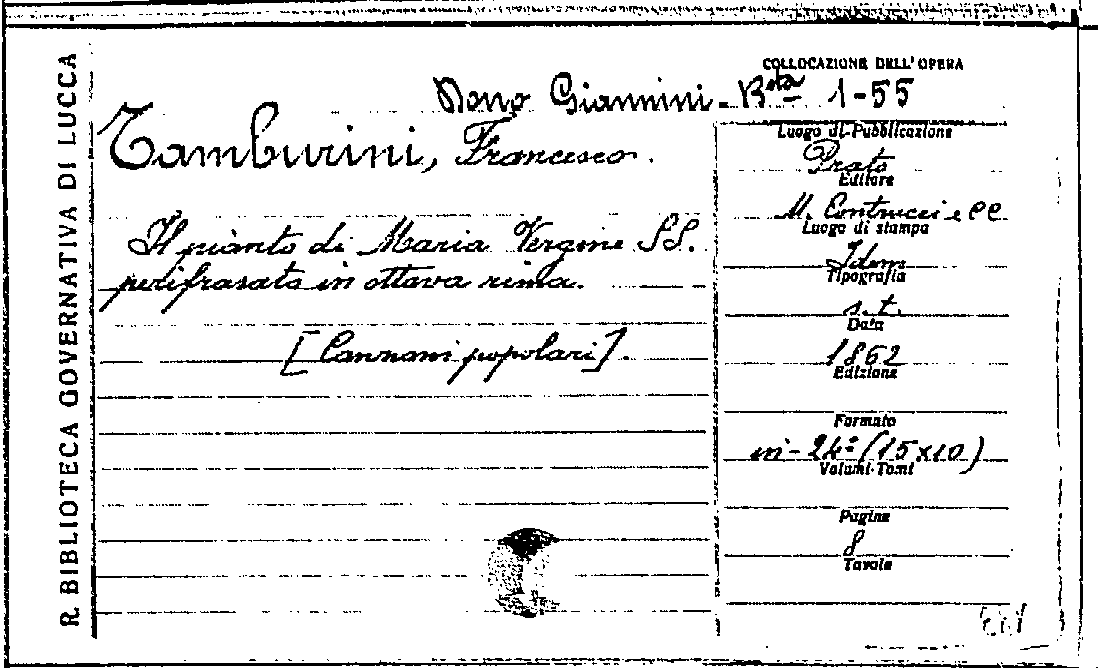 R. BIBLIOTECA GOVERNATIVA DI LUCCA
COLLOCAZIONE DELL'OPERA
Dono Giannini - Bsta 1-55
Tamburini, Francesco.
Il pianto di Maria Vergine SS.
perifrasato in ottava rima.
[Canzoni popolari].
Luogo di Pubblicazione
Prato
Editore
M. Contrucci e CC
Luogo di stampa
Idem
Tipografia
s. t.
Data
1862
Edizione
Formato
in-24º (15x10)
Volumi-Tomi
Pagine
8
Tavole